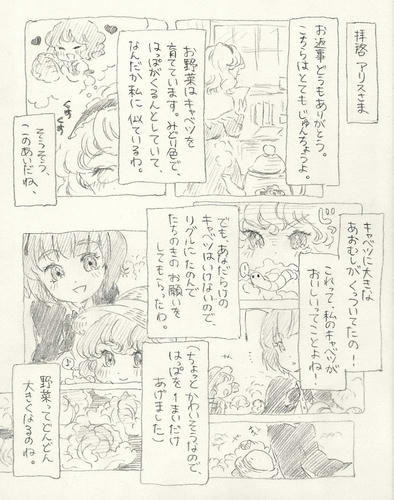 拝啓 アリスさま
お返事どうもありがとう。
こちらはとてもじゅんちょうよ。
お野菜はキャベツを
育てています。みどり色で、
はっぱがくるんとしていて、
なんだか私に似ているわ。
くすくす
そうそう、
このあいだね、
キャベツに大きな
あおむしがくっついてたの！
これって、私のキャベツが
おいしいってことよね！
でも、あなだらけの
キャベツはいけないので、
リグルにたのんで
たちのきのお願いを
してもらったわ。
（ちょっとかわいそうなので、
はっぱを1まいだけ
あげました）
野菜ってどんどん
大きくなるのね。